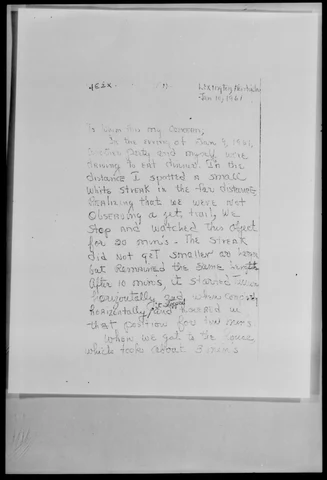 Jan 10, 1961
To Whom this my Concern,
In the morning of Jan 9, 1961,
and myself, were
driving to eat dinner. In the
distance I spotted a small
white streak in the far distance
Realizing that we were not
Observing a jet, trail, we
stop and watched this object
for 20 min's. The streak
did not get smaller or
but Remained the same height
After 10 mins, it started
horizontally and when
Horizontally, and in
that position for two mins.
When we got to the
which took about 3 mins